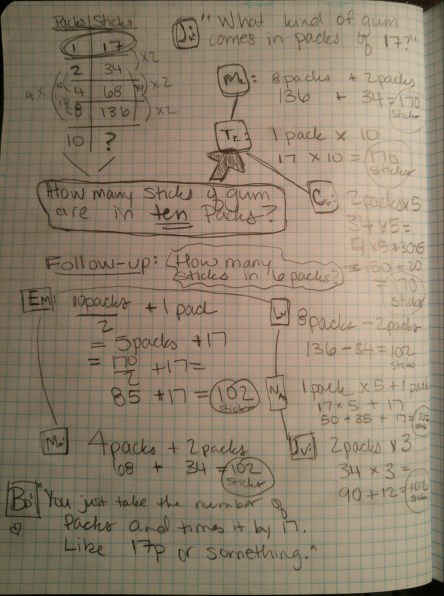 Packs Sticks
1 17
2 34
4 68
8 136
10 ?
x2
x2
x2
4x
"What kind of gum
comes in packs of 17?"
8 packs + 2 packs
136 + 34 = 170
sticks
Tz: 1 pack x 10
17 x 10 = 170
sticks
2 packs x5
34 x 5 =
= 150 + 20
= 170
sticks
How many sticks of gum
are in ten packs?
Follow-up: How many
sticks in 6 packs?
Em: 10 packs + 1 pack
2
= 5 packs + 17
= 170 + 17 =
2
85 + 17 = 102
sticks
W 8 packs - 2 packs
136 - 34 = 102
sticks
1 pack x 5 + 1 pack
17 x 5 + 17
50 + 35 + 17 = 102
Jv: 2 packs x 3
34 x 3 =
90 + 12 = 102
sticks
4 packs + 2 packs
68 + 34 = 102
sticks
"You just take the number of
packs and times it by 17.
Like 17p or something."